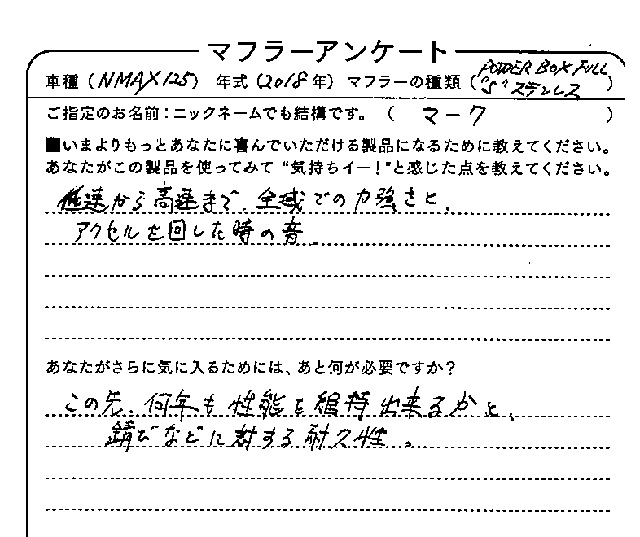 マフラーアンケート
車種（NMAX125） 年式（2018年）マフラーの種類（POWDER BOX FULL "S" ステンレス）
ご指定のお名前：ニックネームでも結構です。（ マーク ）
■いまよりもっとあなたに喜んでいただける製品になるために教えてください。
あなたがこの製品を使ってみて"気持ちイー！"と感じた点を教えてください。
低速から高速まで、全域での力強さと、
アクセルを回した時の音。
あなたがさらに気に入るためには、あと何が必要ですか？
この先、何年も性能を維持出来るかと、
錆びなどに対する耐久性。